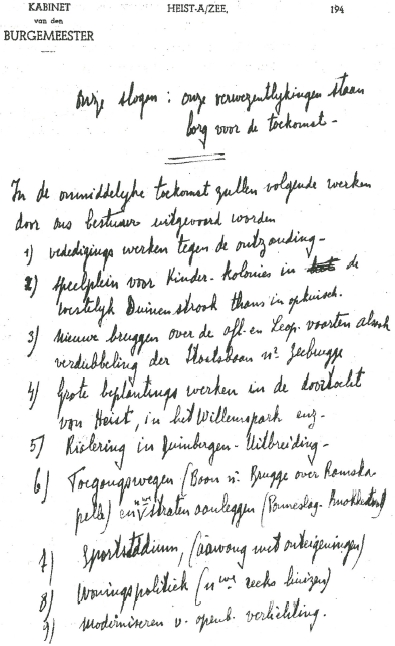 KABINET
van den
BURGEMEESTER
HEIST-A/ZEE, 194
Onze slogen : onze verwezentlijkingen staan
borg voor de toekomst -
In de onmiddelyke toekomst zullen volgende werken
door ons bestuur uitgevoerd worden
1) verdedigings werken tegen de ontzanding -
2) speelplein voor Kinder-Kolonies in de
westelijk Duinenstrook thans in opkuisch.
3) nieuwe bruggen over de afl. en Leop. vaarten alsook
verdubbeling der Staatsbaan nr. Zeebrugge
4) Grote beplantings werken in de doortocht
van Heist, in het Willemspark enz -
5) Riolering in Duinbergen - Uitbreiding -
6) Toegangswegen (Baan nr. Brugge over Ramska-
pelle) en nwe straten aanleggen (Panneslag -
7) Sportstadium, (aanvang met onteigeningen)
8) Woningspolitiek (nwe reeks huizen)
9) Moderniseren v. openb. verlichting.